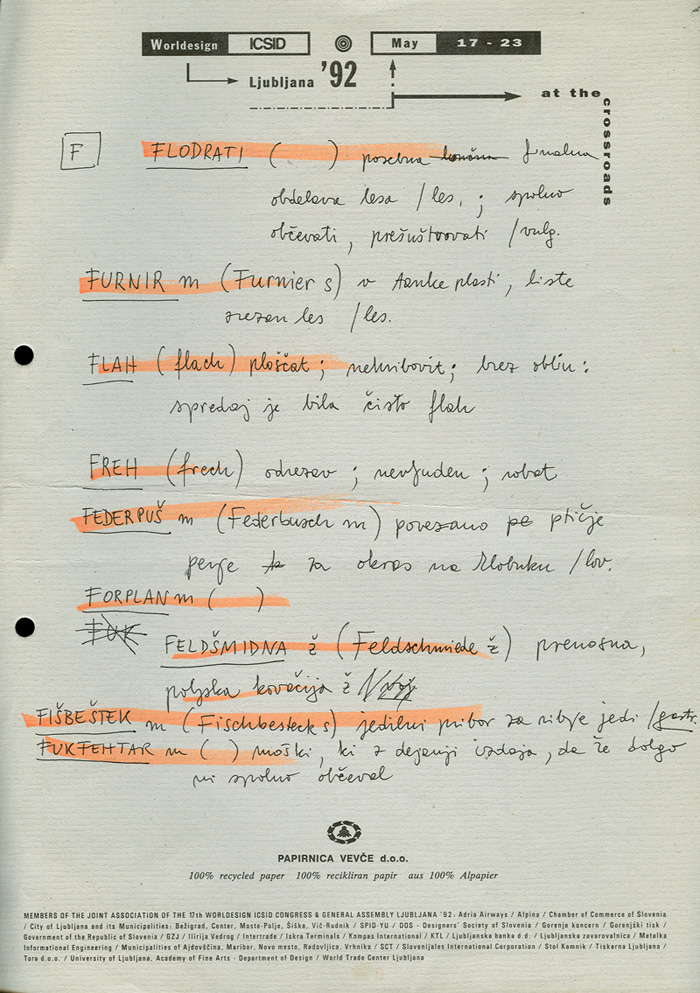 Worldesign ICSID May 17 - 23
Ljubljana '92
at the crossroads
F FLODRATI ( ) posebna končna finalna
obdelava lesa /les. ; spolno
občevati, prešuštvovati /vulg.
FURNIR m (Furnier s) v tanke plasti, liste
zrezan les /les.
FLAH (flach) ploščat; nehribovit; brez oblin:
spredaj je bila čisto flah
FREH (frech) odrezav; nevljuden; robat
FEDERPUŠ m (Federbusch m) povezano pe ptičje
perje za okras na klobuku /lov.
FORPLAN m ( )
FUK
FELDŠMIDNA ž (Feldschmiede ž) prenosna,
poljska kovačija ž
FIŠBEŠTEK m (Fischbesteck s) jedilni pribor za ribje jedi /gastr.
FUKFEHTAR m ( ) moški, ki z dejanji izdaja, da že dolgo
ni spolno občeval
PAPIRNICA VEVČE d.o.o.
100% recycled paper 100% recikliran papir aus 100% Alpapier
MEMBERS OF THE JOINT ASSOCIATION OF THE 17th WORLDESIGN ICSID CONGRESS & GENERAL ASSEMBLY LJUBLJANA '92: Adria Airways / Alpina / Chamber of Commerce of Slovenia
/ City of Ljubljana and its Municipalities: Bežigrad, Center, Moste-Polje, Šiška, Vič-Rudnik / SPID-YU / DOS - Designers' Society of Slovenia / Gorenje koncern / Gorenjski tisk /
Government of the Republic of Slovenia / GZJ / Ilirija Vedrog / Intertrade / Iskra Terminals / Kompas International / KTL / Ljubljanska banka d.d. / Ljubljanska zavarovalnica / Metalka
Informational Engineering / Municipalities of Ajdovščina, Maribor, Novo mesto, Radovljica, Vrhnika / SCT / Slovenijales International Corporation / Stol Kamnik / Tiskarna Ljubljana /
Tora d.o.o. / University of Ljubljana, Academy of Fine Arts - Department of Design / World Trade Center Ljubljana